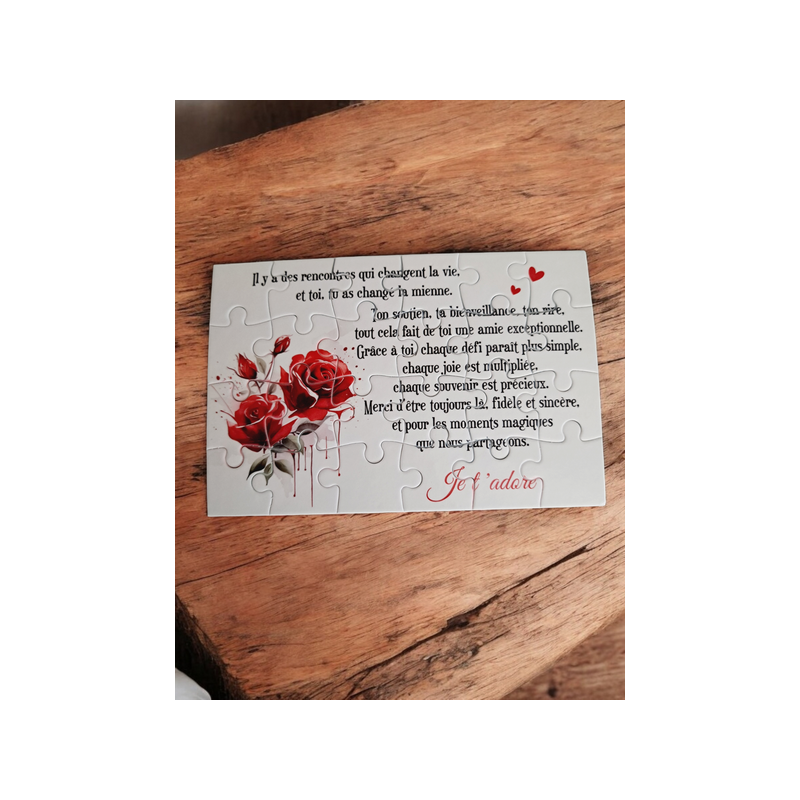 Il y a des rencontres qui changent la vie,
et toi, tu as changé la mienne.
Ton soutien, ta bienveillance, ton rire,
tout cela fait de toi une amie exceptionnelle.
Grâce à toi, chaque défi paraît plus simple,
chaque joie est multipliée,
chaque souvenir est précieux.
Merci d'être toujours là, fidèle et sincère,
et pour les moments magiques
que nous partageons.
Je t'adore